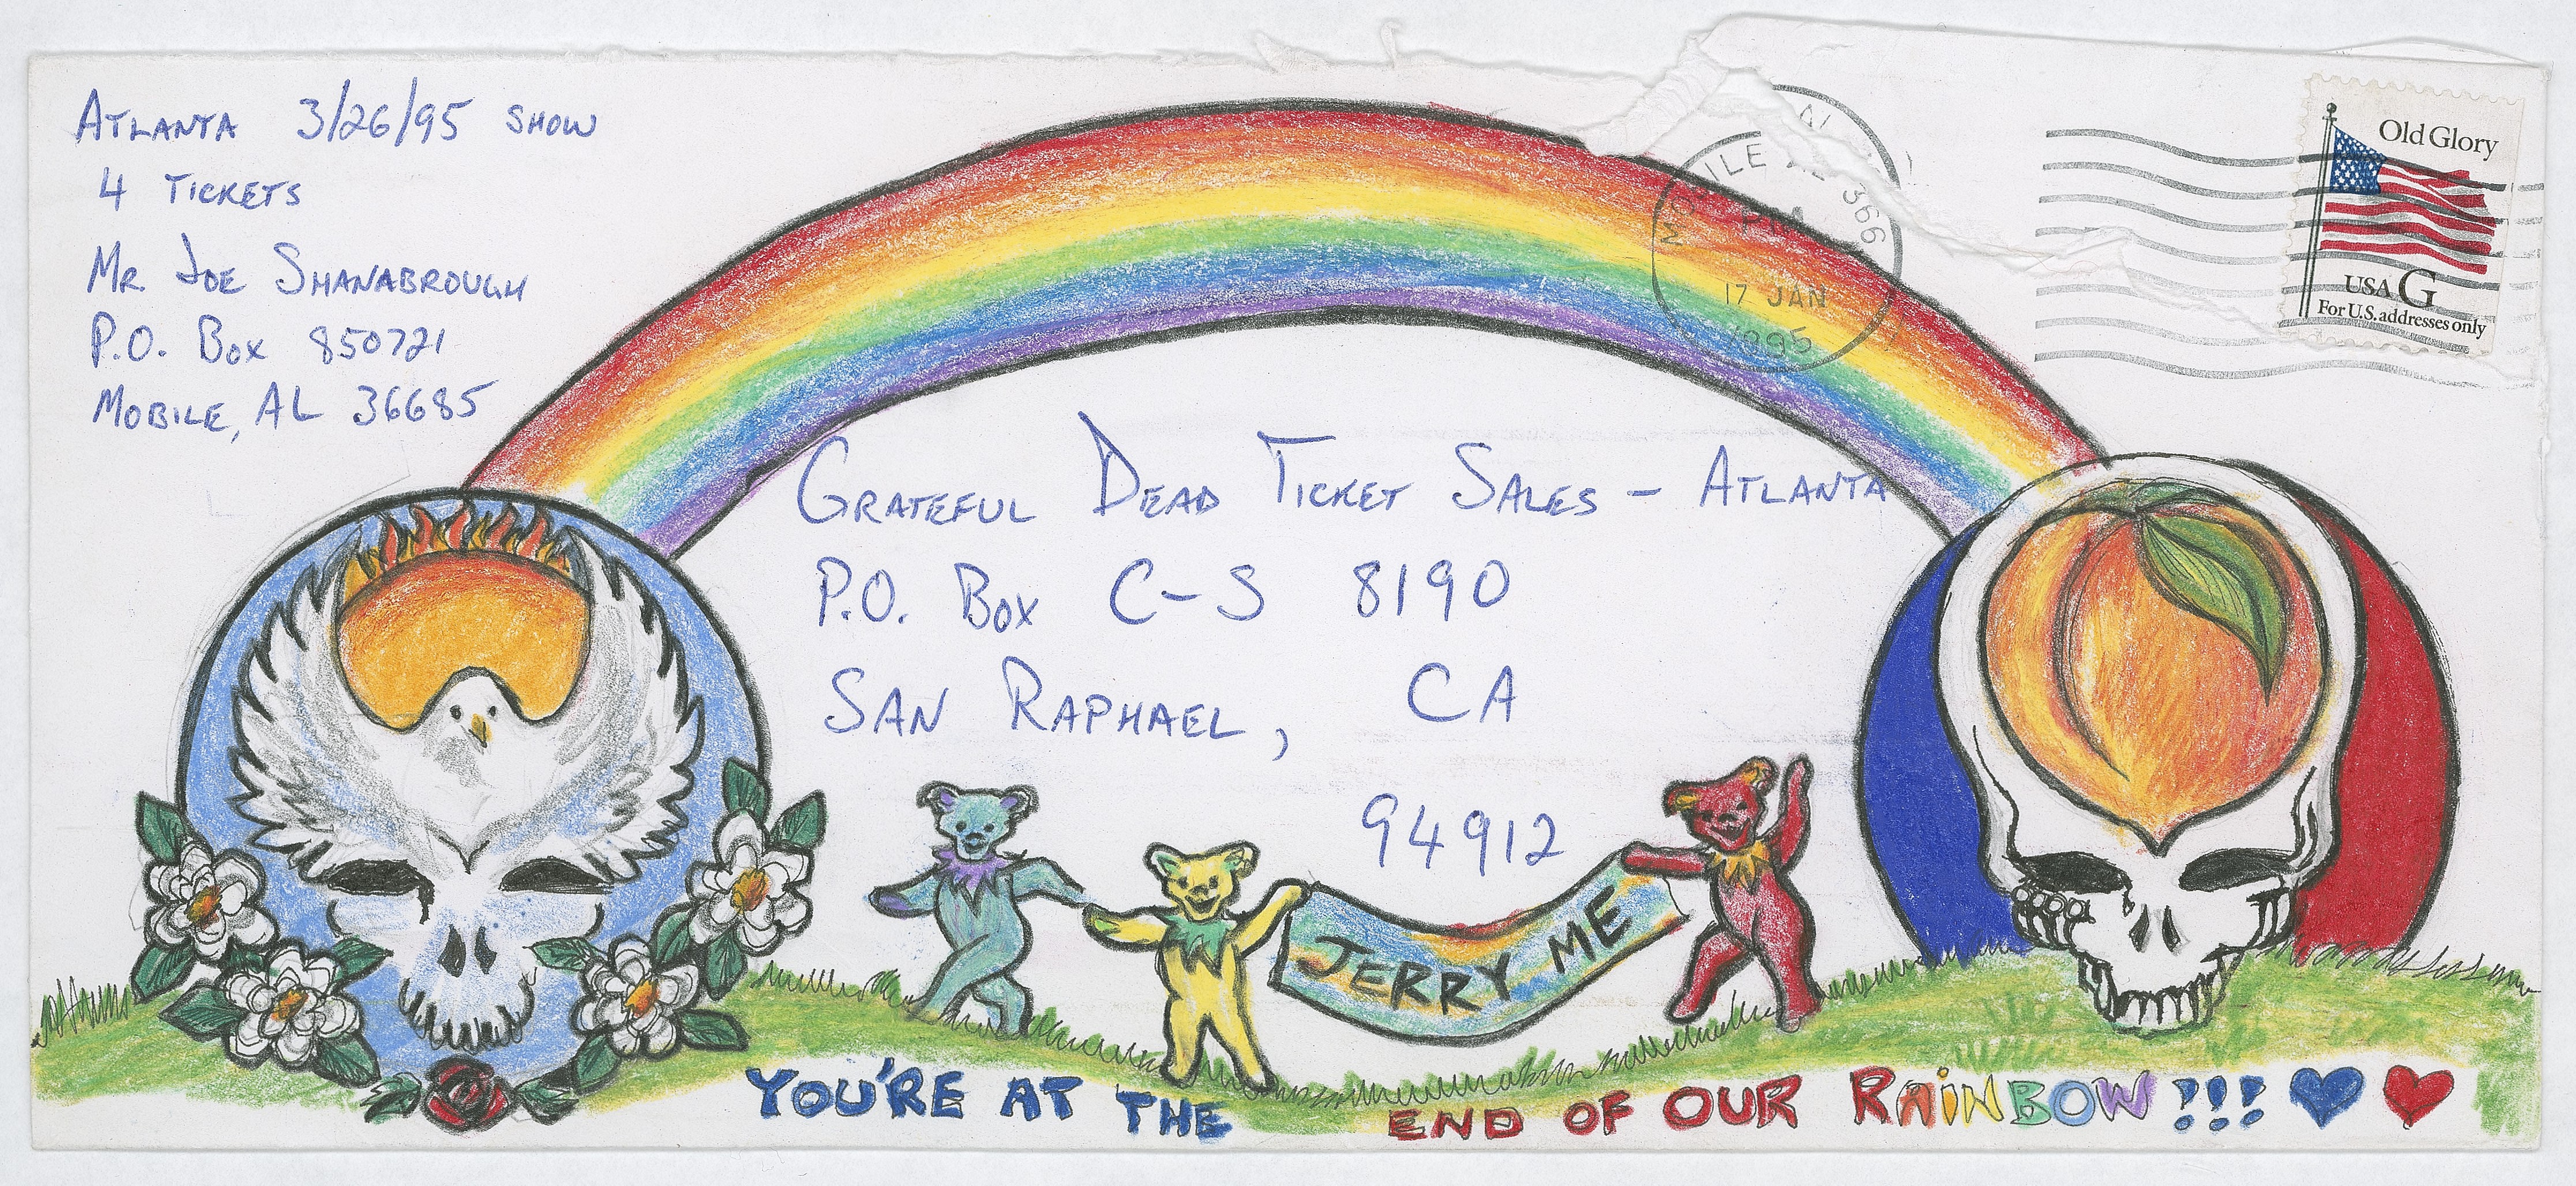 ATLANTA 3/26/95 SHOW
4 TICKETS
MR. JOE SHANABROUGH
P.O. BOX 850721
MOBILE, AL 36685
Old Glory
USA G
For U.S. addresses only
366
17 JAN
1995
GRATEFUL DEAD TICKET SALES - ATLANTA
P.O. BOX C-S 8190
SAN RAPHAEL, CA
94912
JERRY ME
YOU'RE AT THE END OF OUR RAINBOW!!!